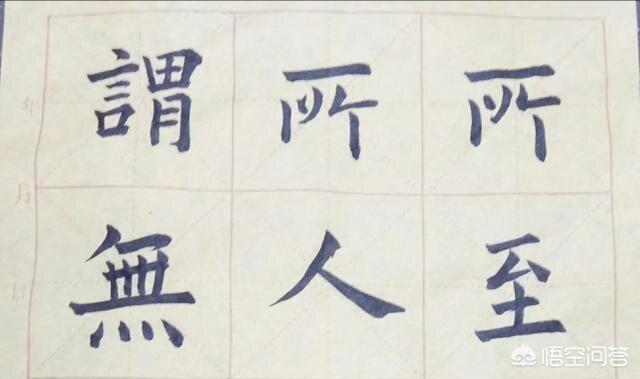 所至
所人
謂無
年月日
悟空问答